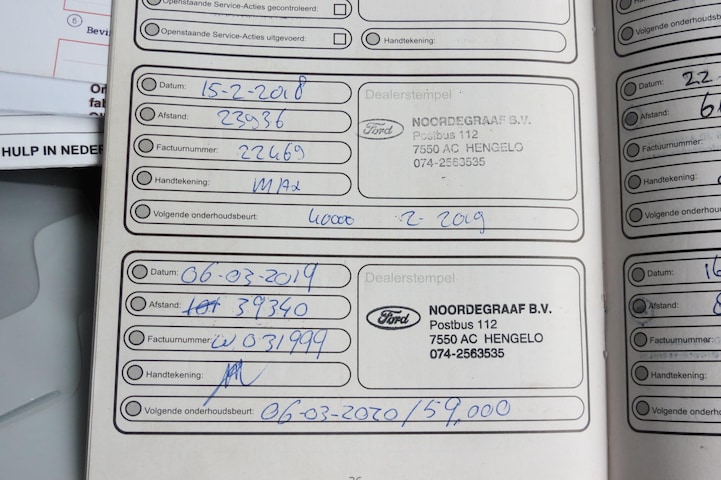 Openstaande Service-Acties gecontroleerd:
Openstaande Service-Acties uitgevoerd:
Handtekening:
Datum: 15-2-2018
Afstand: 23936
Factuurnummer: 22469
Handtekening:
Volgende onderhoudsbeurt: 40000 2-2019
Dealerstempel
Ford
NOORDEGRAAF B.V.
Postbus 112
7550 AC HENGELO
074-2563535
Datum: 06-03-2019
Afstand: 39340
Factuurnummer: W031999
Handtekening:
Volgende onderhoudsbeurt: 06-03-2020/59,000
Dealerstempel
Ford
NOORDEGRAAF B.V.
Postbus 112
7550 AC HENGELO
074-2563535
HULP IN NEDER
Volgende onderhou
Datum: 22-
Afstand: 6
Factuurnummer:
Handtekening:
Volgende onderhou
Datum: 16
Afstand: 8
Factuurnummer:
Handtekening:
Volgende onderhou